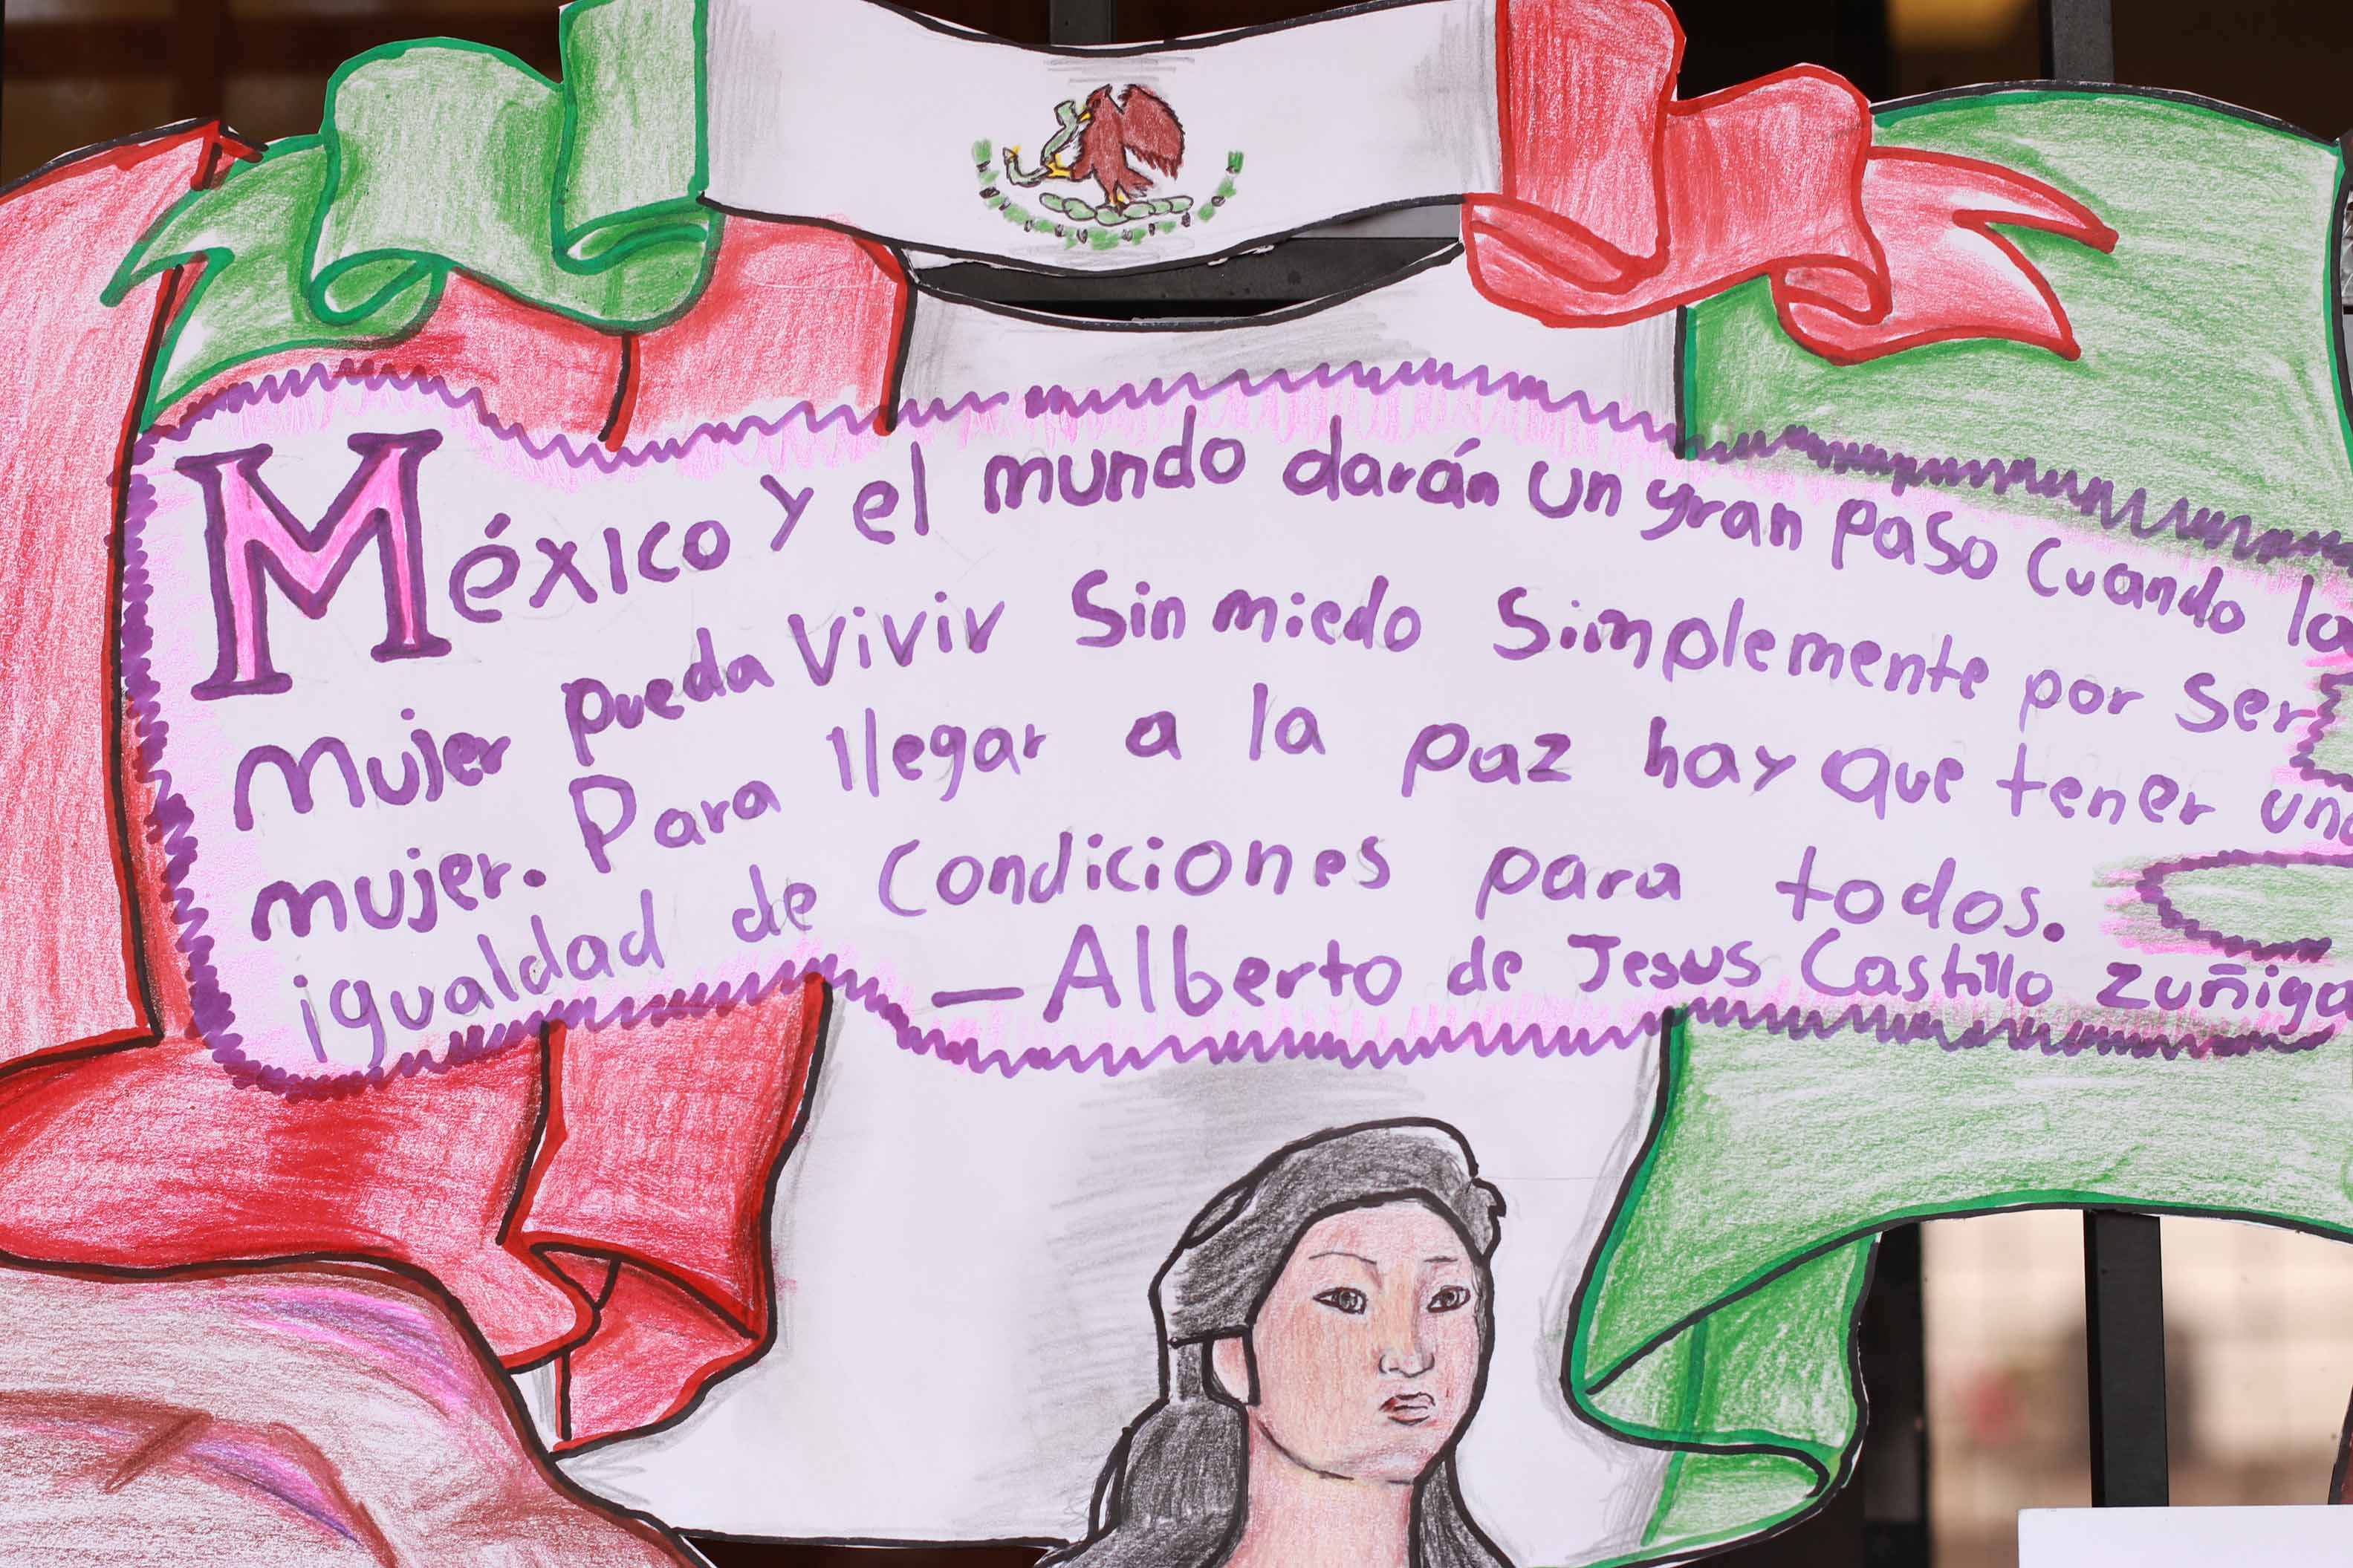 México y el mundo darán un gran paso cuando la
mujer pueda vivir sin miedo simplemente por ser
mujer. Para llegar a la paz hay que tener una
igualdad de condiciones para todos.
— Alberto de Jesus Castillo Zuñiga